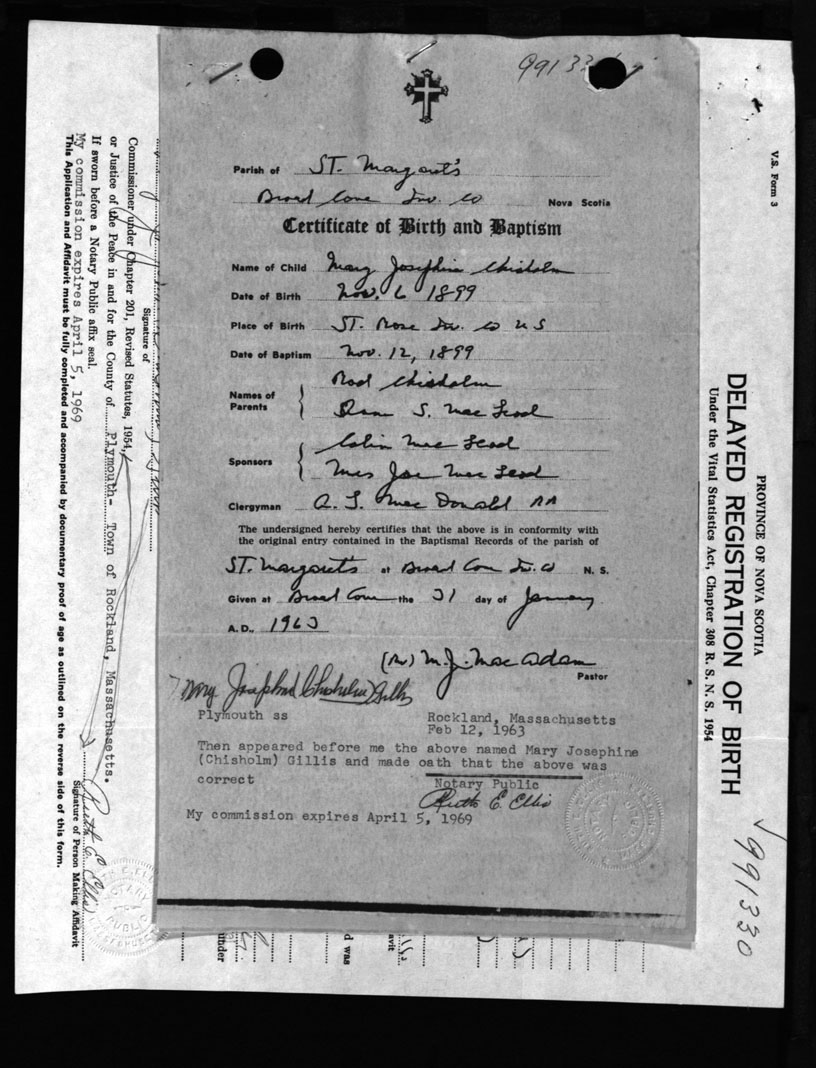 99133
Parish of ST. Margaret's
Broad Cove Inv. Co Nova Scotia
Certificate of Birth and Baptism
Name of Child Mary Josephine Chisholm
Date of Birth Nov. 6 1899
Place of Birth ST. Rose Inv. Co N S
Date of Baptism Nov. 12, 1899
Names of Parents
Rod Chisholm
S. Mac Leod
Sponsors
Colin Mac Leod
Mrs Joe Mac Leod
Clergyman A. L. Mac Donald
The undersigned hereby certifies that the above is in conformity with
the original entry contained in the Baptismal Records of the parish of
ST. Margaret's at Broad Cove Inv. Co N. S.
Given at Broad Cove the 31 day of January
A. D., 1963
(Rev) M. J. Mac Adam
Pastor
Mary Josephine (Chisholm) Gillis
Plymouth ss Rockland, Massachusetts
Feb 12, 1963
Then appeared before me the above named Mary Josephine
(Chisholm) Gillis and made oath that the above was
correct Notary Public
Ruth E. Ellis
My commission expires April 5, 1969
V.S. Form 3
PROVINCE OF NOVA SCOTIA
DELAYED REGISTRATION OF BIRTH
Under the Vital Statistics Act, Chapter 308 R. S. N. S. 1954
991330
Signature of
Commissioner under Chapter 201, Revised Statutes, 1954,
or Justice of the Peace in and for the County of Plymouth- Town of Rockland, Massachusetts.
If sworn before a Notary Public affix seal.
My commission expires April 5, 1969
Ruth E Ellis
Signature of Person Making Affidavit
This Application and Affidavit must be fully completed and accompanied by documentary proof of age as outlined on the reverse side of this form.
under
d was
avit